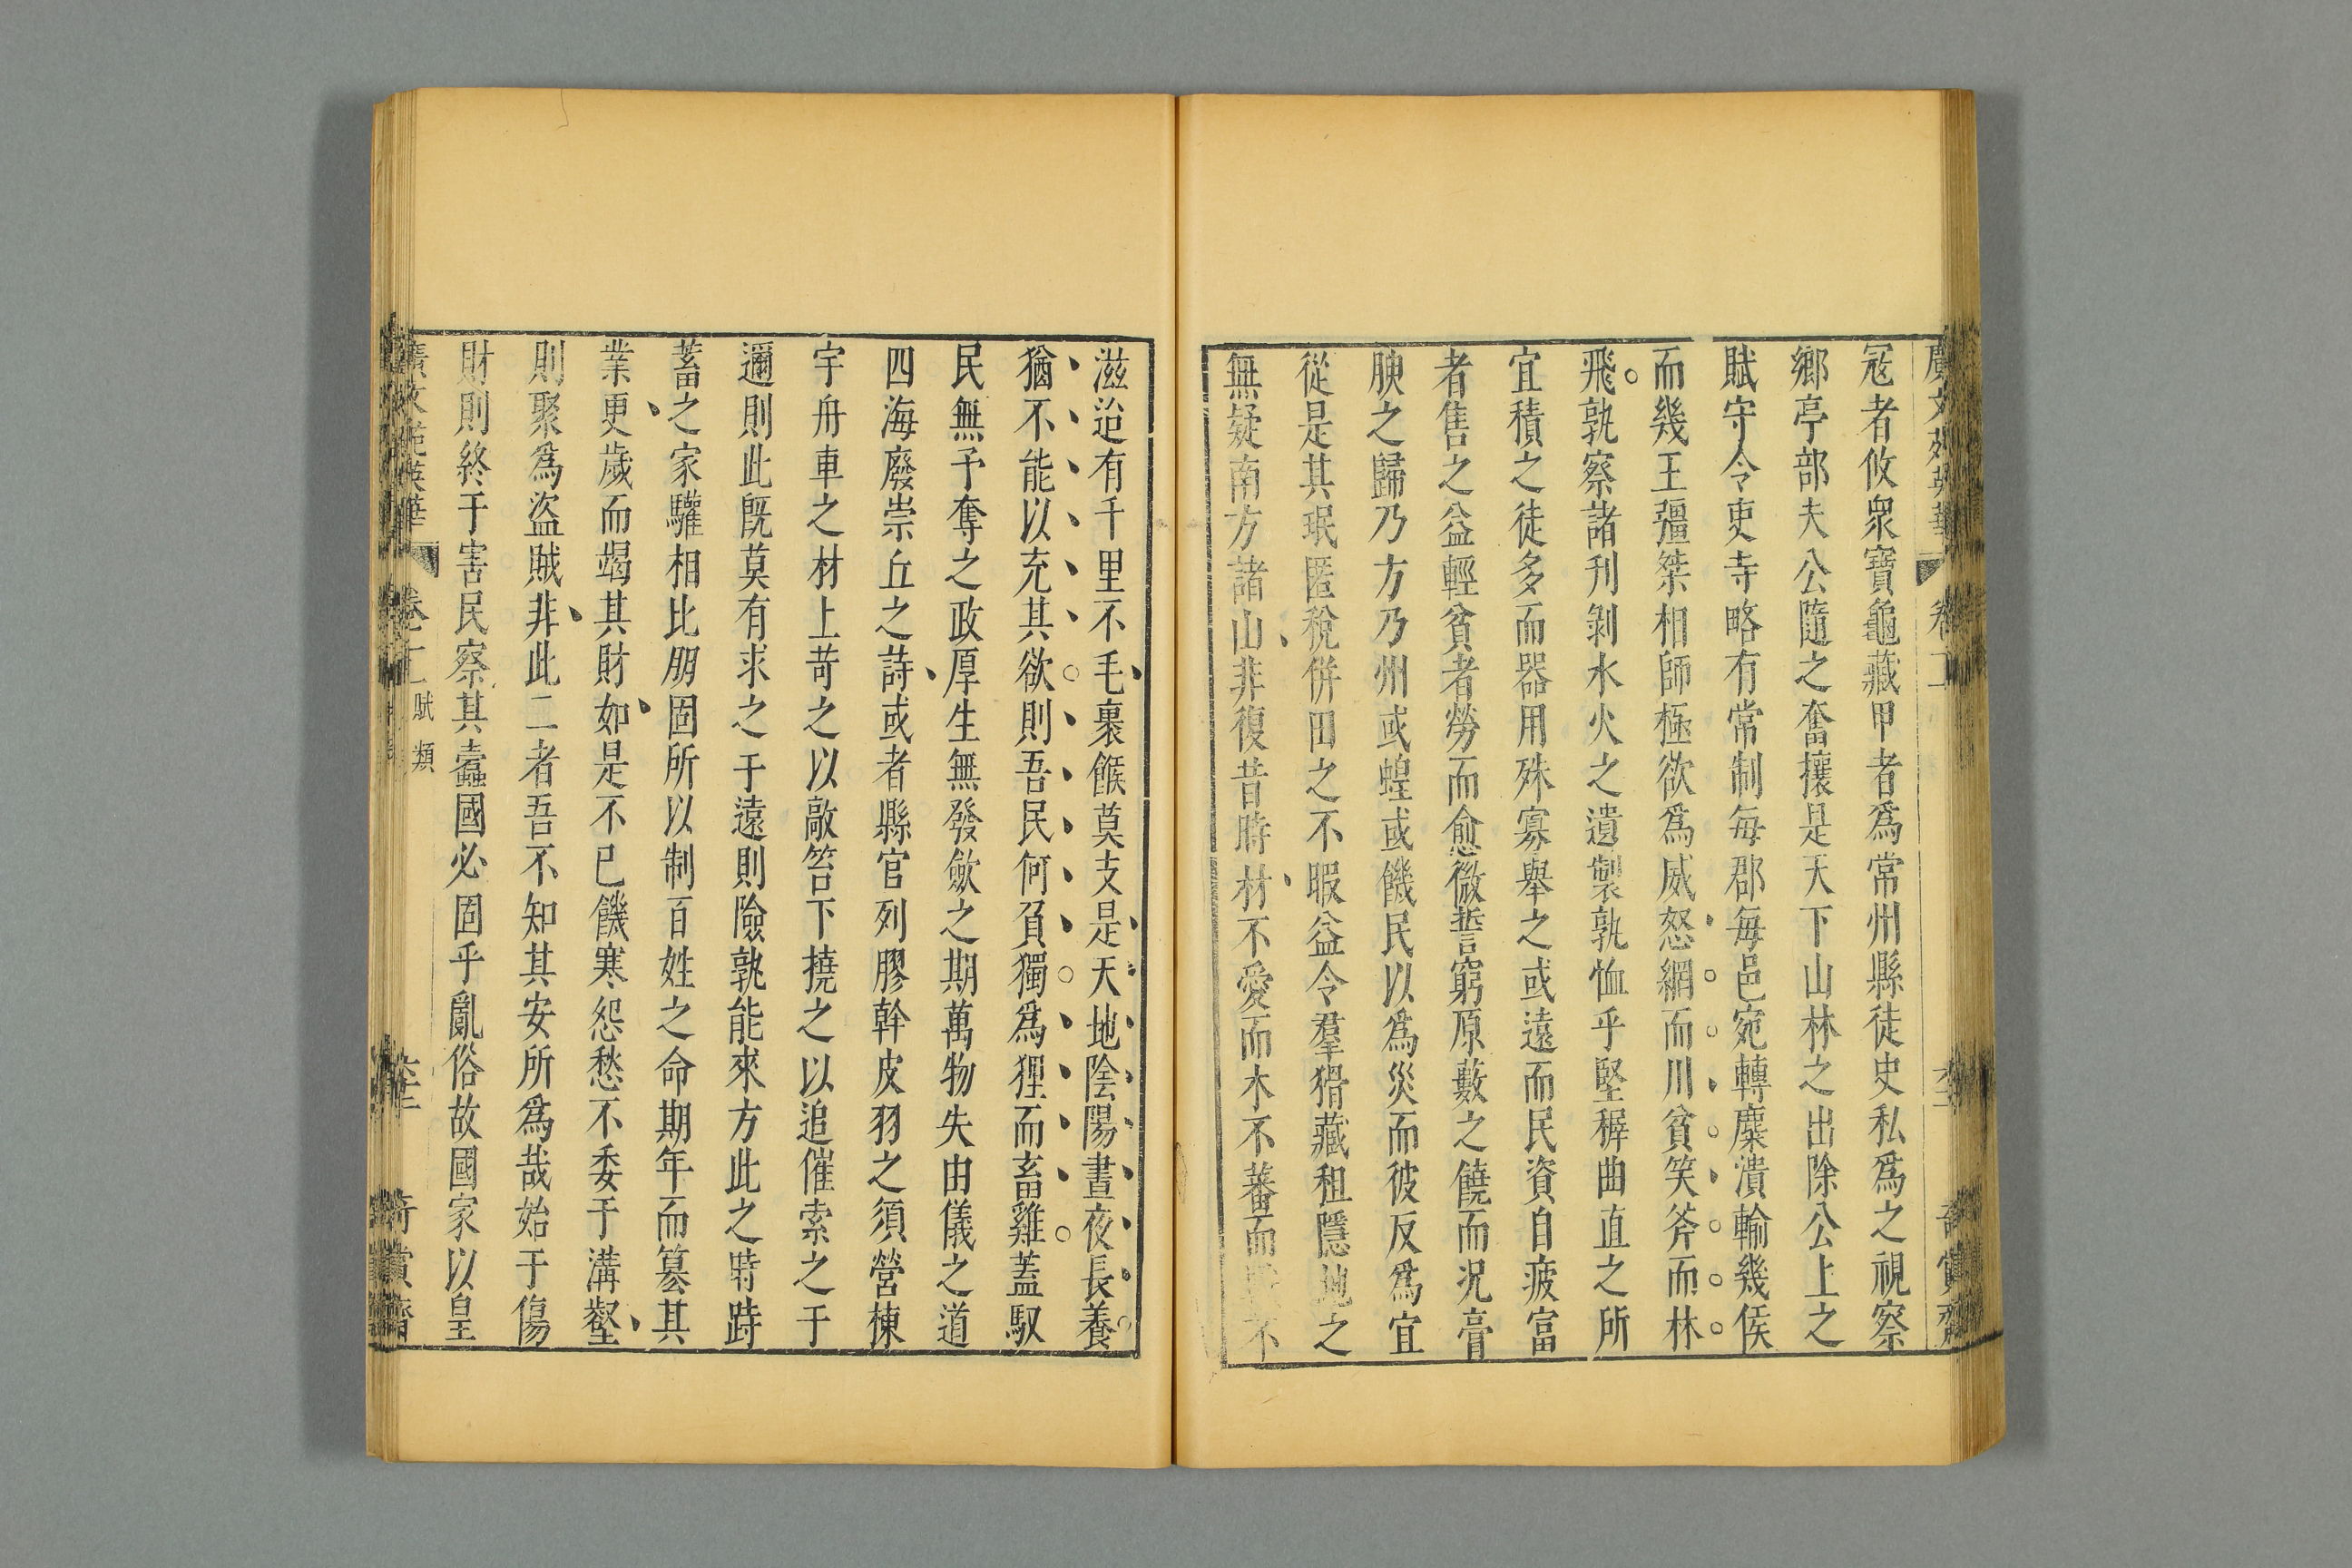 廣文苑英華 卷二 奇賞齋
寇者攸衆寶龜藏甲者爲常州縣徒史私爲之視察
鄉亭部夫公隨之奮攘是天下山林之出除公上之
賦守令吏寺略有常制每郡每邑宛轉麋潰輸幾侯
而幾王彊桀相師極欲爲威怒網而川貧笑斧而林
飛孰察諸刋剝水火之遺製孰恤乎堅穉曲直之所
宜積之徒多而器用殊寡舉之或遠而民資自疲富
者售之益輕貧者勞而愈微誓窮原藪之饒而况膏
腴之歸乃方乃州或蝗或饑民以爲災而彼反爲宜
從是其珉匿稅併田之不暇益令羣猾藏租隱地之
無疑南方諸山非復昔時材不愛而木不蕃而不
滋迨有千里不毛裹餱莫支是天地陰陽晝夜長養
猶不能以充其欲則吾民何負獨爲狸而畜雞蓋馭
民無予奪之政厚生無發斂之期萬物失由儀之道
四海廢崇丘之詩或者縣官列膠幹皮羽之須營棟
宇舟車之材上苛之以敲笞下撓之以追催索之于
邇則此旣莫有求之于遠則險孰能來方此之時跱
蓄之家驩相比朋固所以制百姓之命期年而簒其
業更歲而竭其財如是不已饑寒怨愁不委于溝壑
則聚爲盜賊非此二者吾不知其安所爲哉始于傷
財則終于害民察其蠧國必固乎亂俗故國家以皇
廣文苑英華 卷二 賦類 奇賞齋